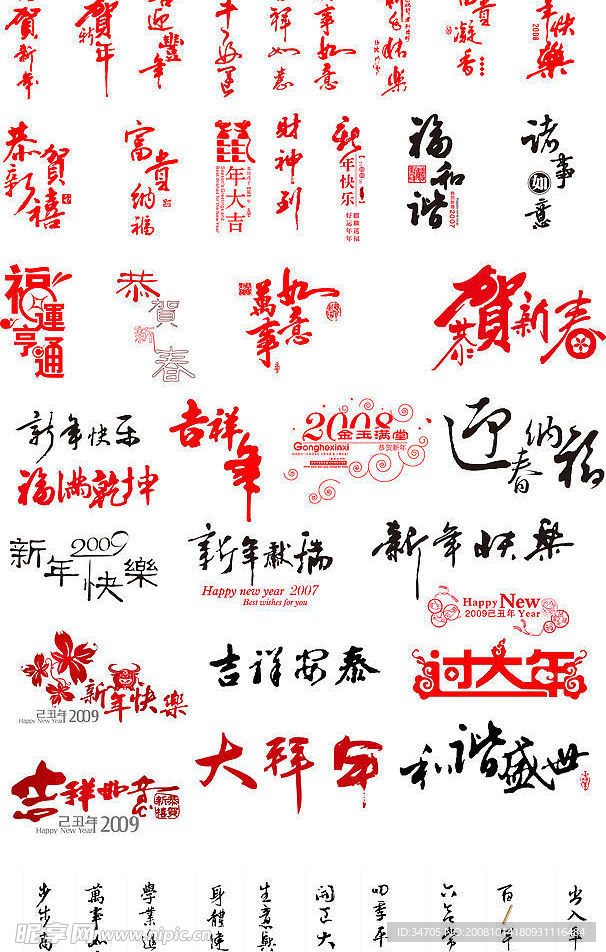 賀新年
賀新年
迎豐年
吉祥如意
事如意
貴凝香
快樂
2008
恭賀新禧
富貴納福
年大吉
財神到
新年快乐
麒麟送福
好运年年
福和谐
2007
诸事如意
福運亨通
恭賀新春
萬事如意
恭賀新春
新年快乐
福满乾坤
吉祥年
2008
金玉满堂
Gonghexinxi
恭贺新年
迎春纳福
2009
新年快樂
新年献瑞
Happy new year 2007
Best wishes for you
新年快樂
Happy New
2009己丑年 Year
新年快樂
己丑年
Happy New Year 2009
吉祥安泰
过大年
吉祥如意
恭賀新禧
己丑年
Happy New Year 2009
大拜年
和谐盛世
步步高
萬事如
學業進
身體健
生意興
四季平
六合
百年
出入平
昵享网 www.nipic.cn
34705 NO:20081014180931116484